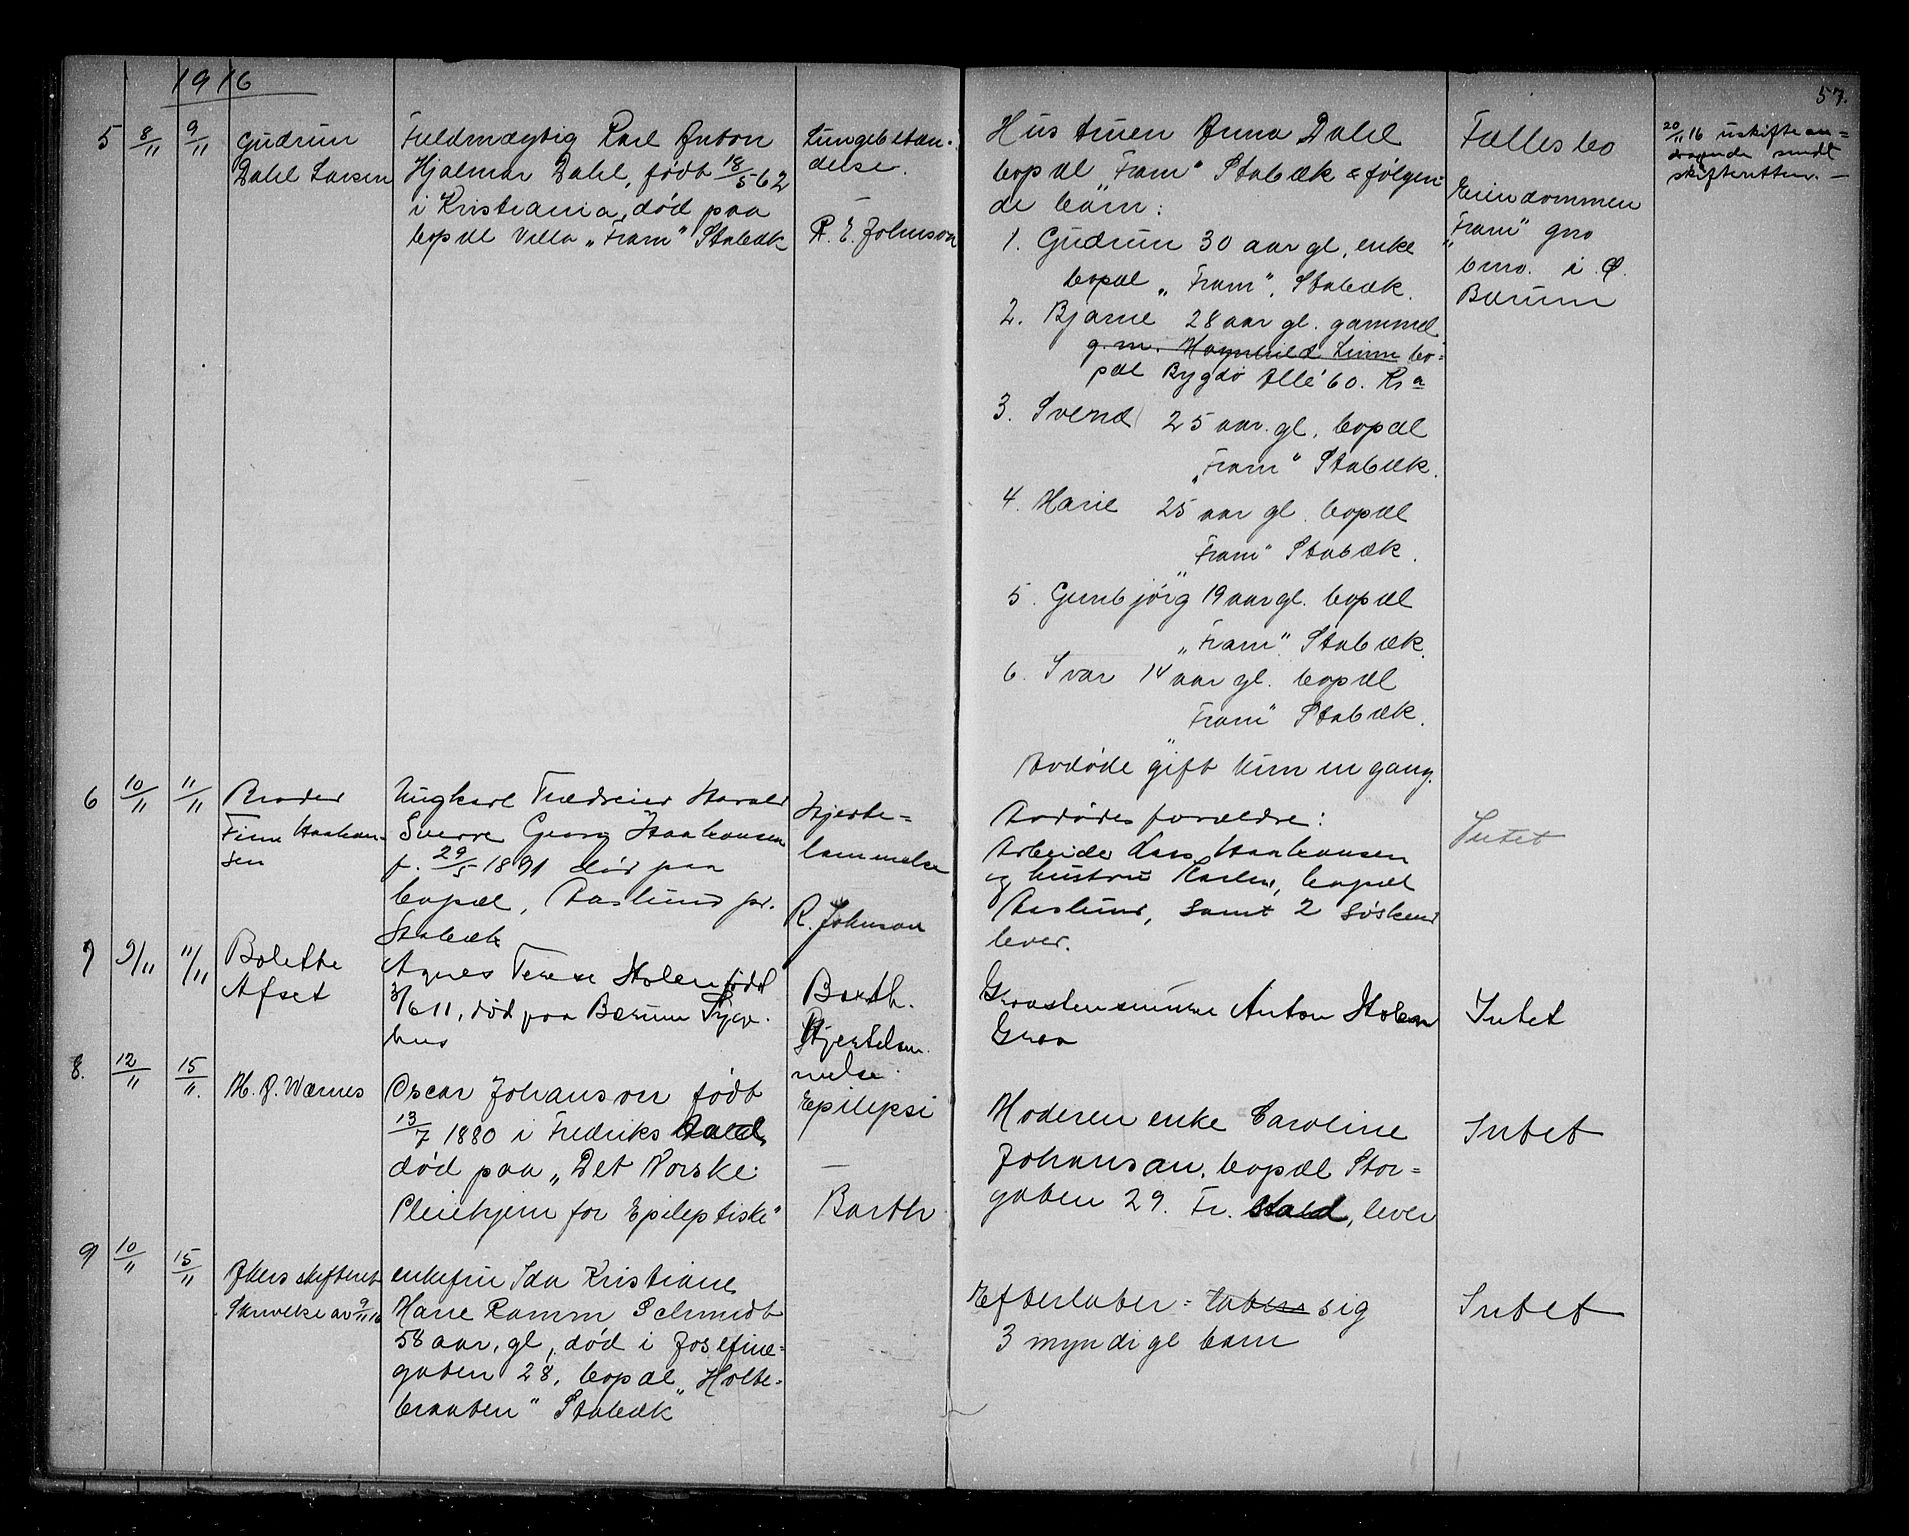 1916
57.
5 8/11 9/11 Gudrun
Dahl Larsen
Fuldmægtig Karl Anton
Hjalmar Dahl, født 18/5 62
i Kristiania, død paa
bopæl Villa „Fram" Stabæk
Lungebetæn-
delse.
R. E. Johnson
Hustruen Anna Dahl
bopæl „Fram" Stabæk & følgen-
de barn:
1. Gudrun 30 aar gl, enke
bopæl „Fram", Stabæk.
2. Bjarne 28 aar gl. gammel
g. m. bo-
pæl Bygdø Allé 60. Kra
3. Svend 25 aar. gl, bopæl
„Fram" Stabæk.
4. Marie 25 aar gl. bopæl
„Fram" Stabæk.
5. Gunbjørg 19 aar gl. bopæl
„Fram". Stabæk.
6. Ivar 14 aar gl. bopæl
„Fram" Stabæk.
Avdøde gift kun en gang.
Fællesbo
Eiendommen
„Fram" gno
bno. i Ø.
Bærum
20/11 16 uskiftean-
dragende sendt
skifteretten. —
6 10/11 11/11 Broder
Finn Haakon-
sen
Ungkarl Harald
Sverre Georg Haakonsen
f. 29/5 1891 død paa
bopæl, Aaslund pr.
Stabæk
Hjerte-
lammelse
R. Johnson
Avdødes forældre:
Arbeider Lars Haakonsen
og hustru bopæl
Aaslund, samt 2 søskend
lever.
Intet
7 9/11 11/11 Bolette
Afset
Agnes Terese Holen født
3/6 11, død paa Bærum Syge-
hus
Barth.
Hjertelam-
melse.
Graastensmurer Anton Holen
Grav
Intet
8. 12/11 15/11. M. A. Wærnes
Oscar Johanson født
13/7 1880 i Fredrikshald,
død paa „Det Norske
Pleiehjem for Epileptiske"
Epilepsi
—
Barth
Moderen enke Caroline
Johansan, bopæl Stor-
gaten 29. Fr. hald, lever
Intet
9 10/11 15/11 Akers skifteret
Skrivelse av 9/11 16
enkefru Ida Kristiane
Marie Ramm Schmidt
58 aar, gl, død i Josefine-
gaten 28, bopæl „Holte-
braaten" Stabæk
Efterlater- sig
3 myndige barn
Intet